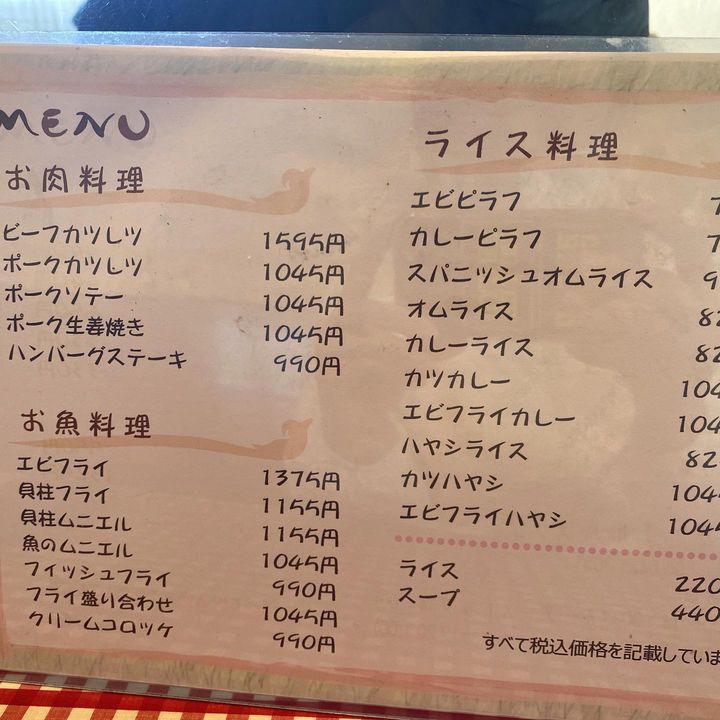 MENU
お肉料理
ビーフカツレツ 1595円
ポークカツレツ 1045円
ポークソテー 1045円
ポーク生姜焼き 1045円
ハンバーグステーキ 990円
お魚料理
エビフライ 1375円
貝柱フライ 1155円
貝柱ムニエル 1155円
魚のムニエル 1045円
フィッシュフライ 990円
フライ盛り合わせ 1045円
クリームコロッケ 990円
ライス料理
エビピラフ
カレーピラフ
スパニッシュオムライス
オムライス
カレーライス
カツカレー
エビフライカレー
ハヤシライス
カツハヤシ
エビフライハヤシ 1045
ライス 220
スープ 440
すべて税込価格を記載していま